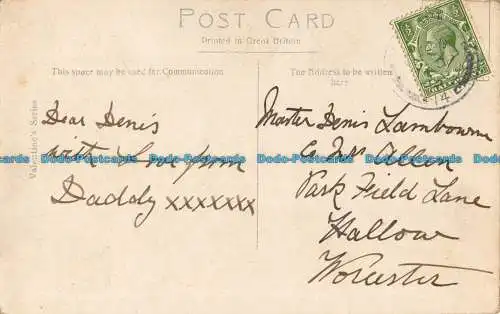 POST CARD
Printed in Great Britain
This space may be used for Communication
The Address to be written here
Valentine's Series
Dear Denis
with love from
Daddy xxxxxxx
Master Denis Lambourne
c/o Mrs Allen
Park Field Lane
Hallow
Worcester
Dodo-Postcards Dodo-Postcards Dodo-Postcards Dodo-Postcards Dodo-Postcards